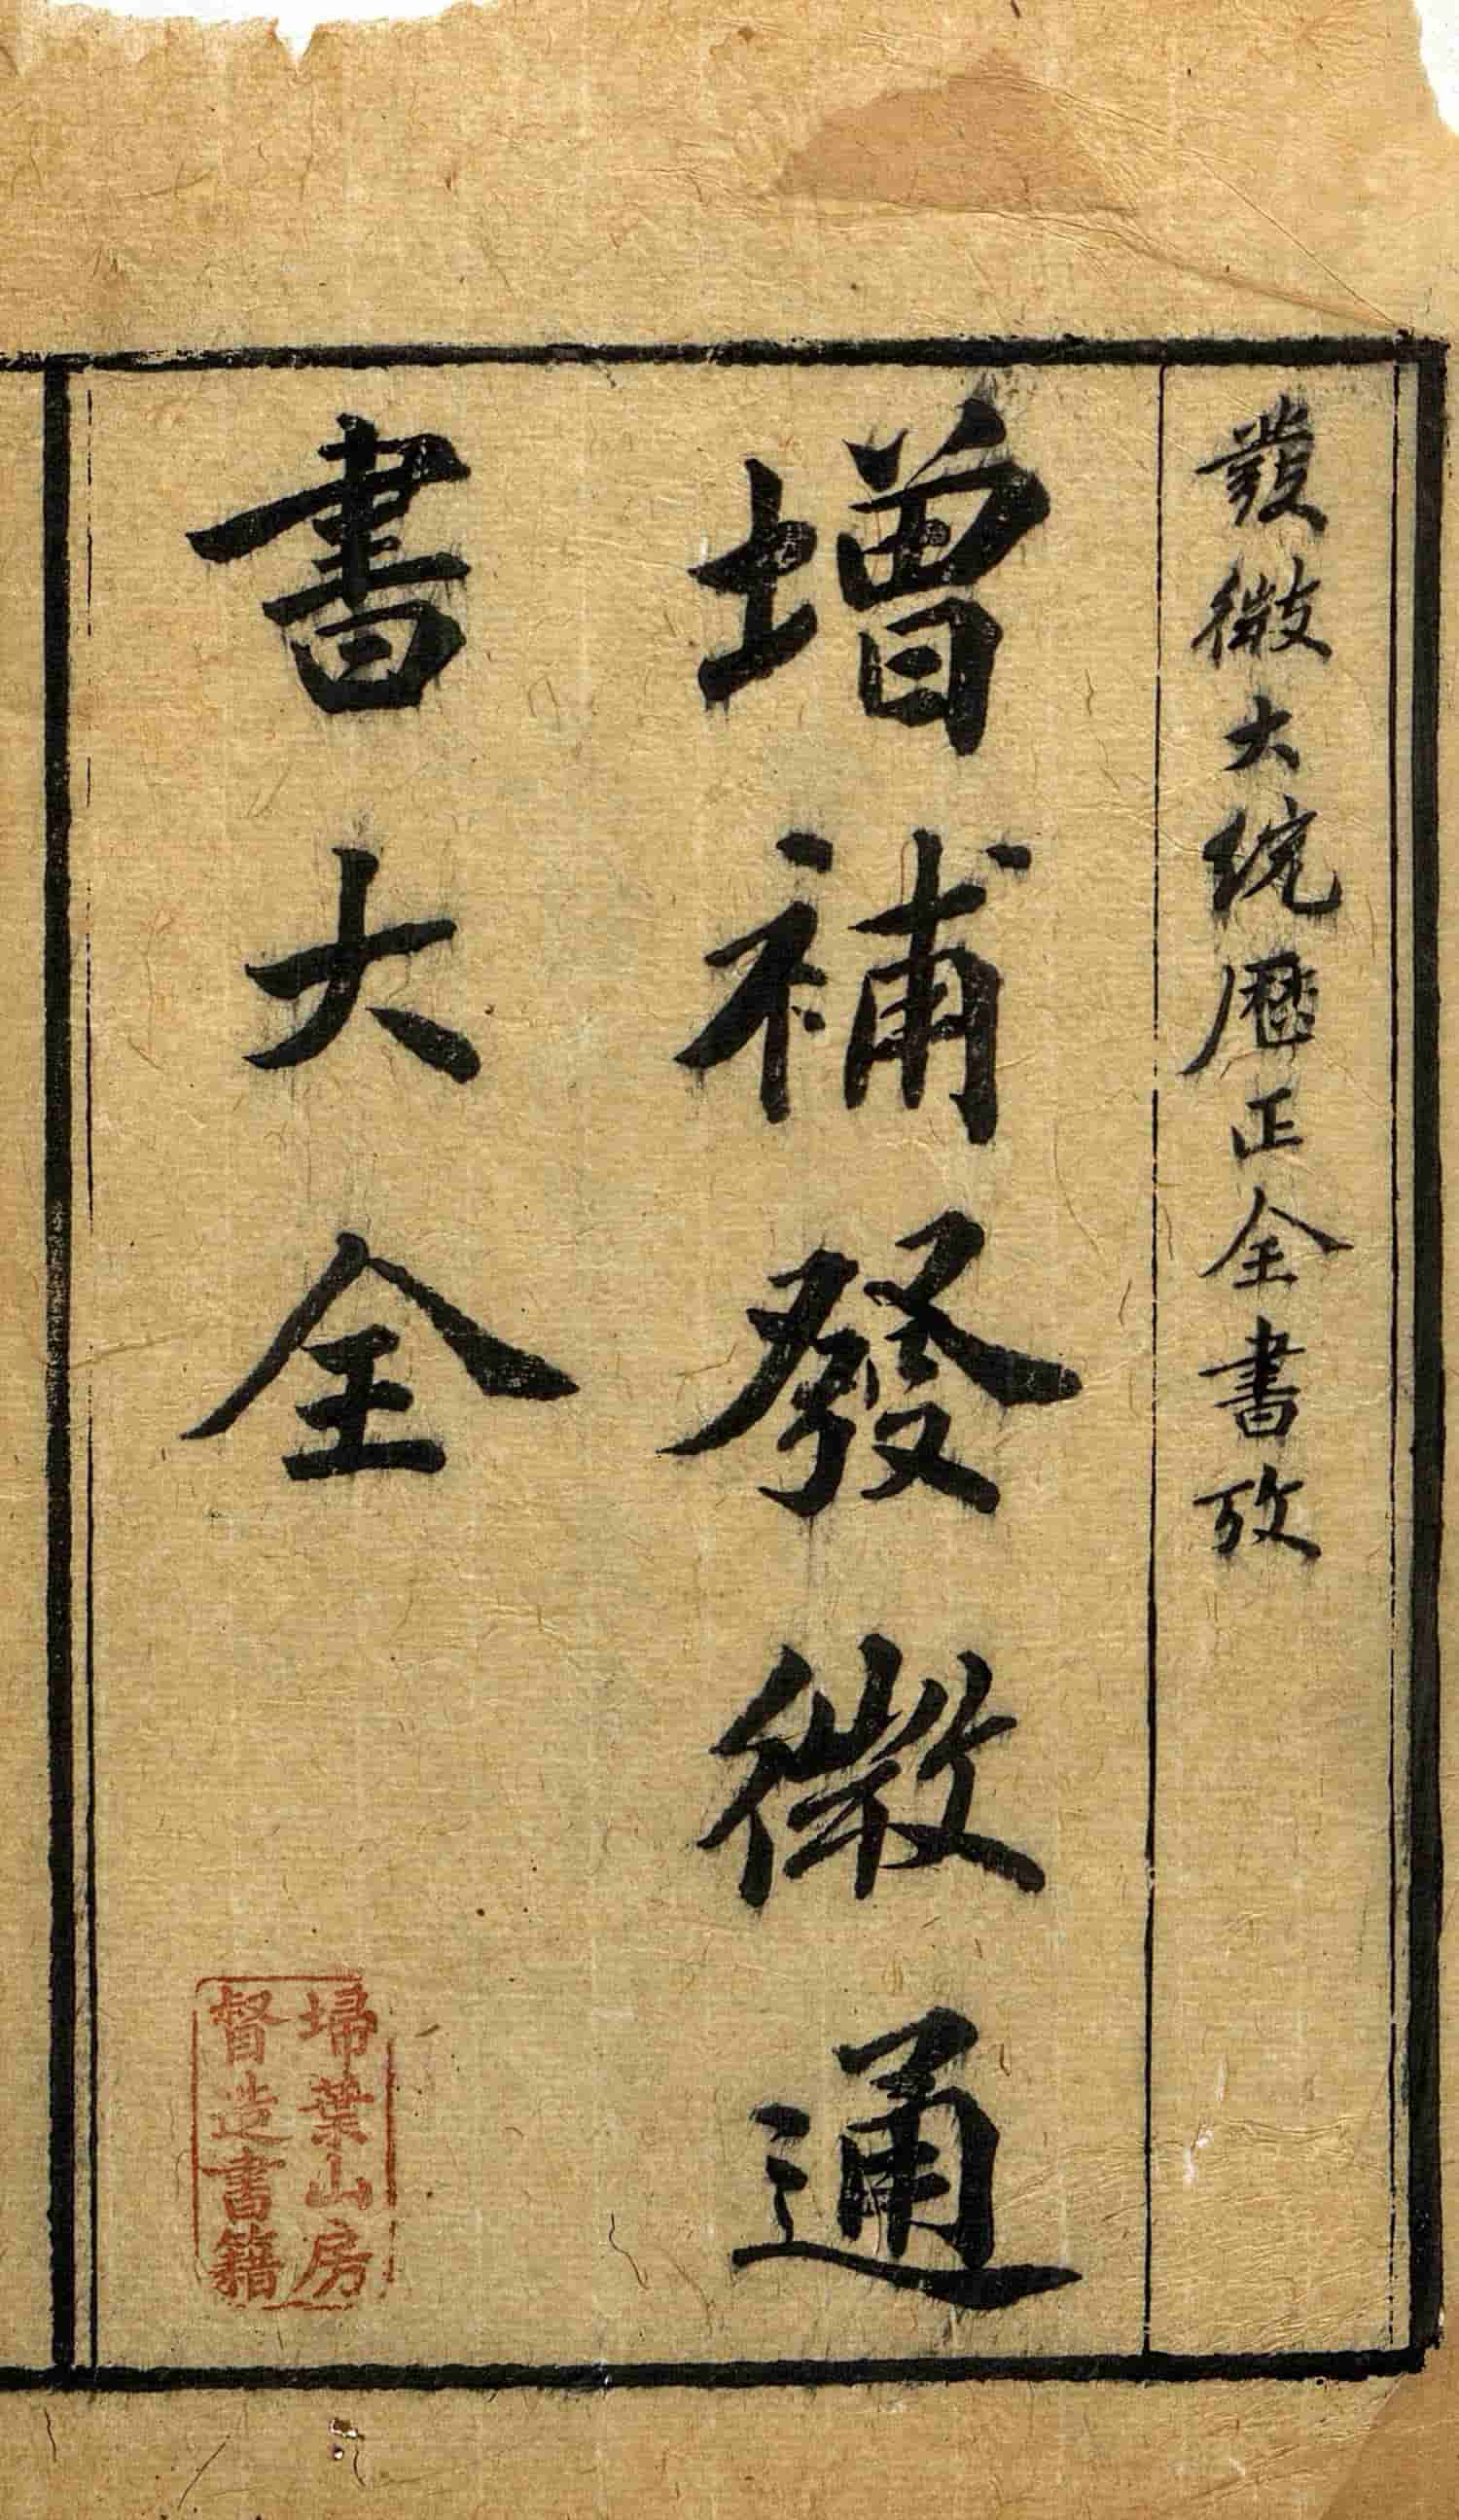 發微大統曆正全書攷
增補發微通
書大全
埽葉山房
督造書籍